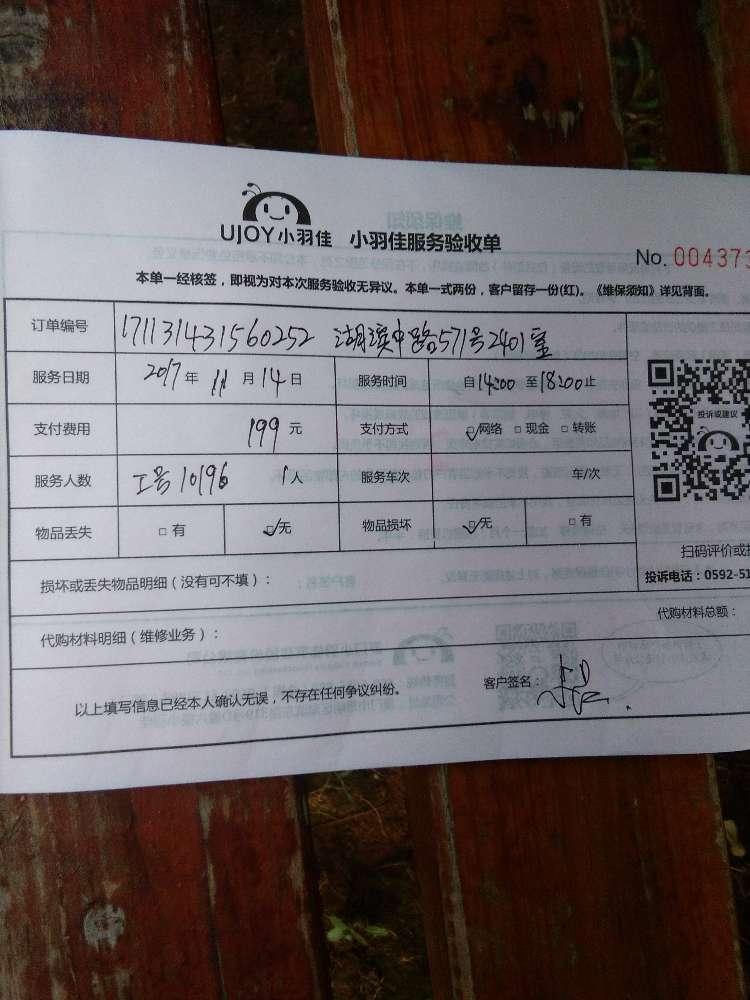 UJOY小羽佳 小羽佳服务验收单
No. 004373
本单一经核签，即视为对本次服务验收无异议。本单一式两份，客户留存一份(红)。《维保须知》详见背面。
订单编号 171131431560252 湖滨中路571号2401室
服务日期 2017 年 11 月 14 日 服务时间 自 14:00 至 18:00 止
投诉或建议
支付费用 199 元 支付方式 ☑网络 □现金 □转账
服务人数 工号10196 1人 服务车次 车/次
物品丢失 □有 ☑无 物品损坏 ☑无 □有
扫码评价或
损坏或丢失物品明细（没有可不填）：
投诉电话：0592-51
代购材料明细（维修业务）：
代购材料总额：
以上填写信息已经本人确认无误，不存在任何争议纠纷。 客户签名：